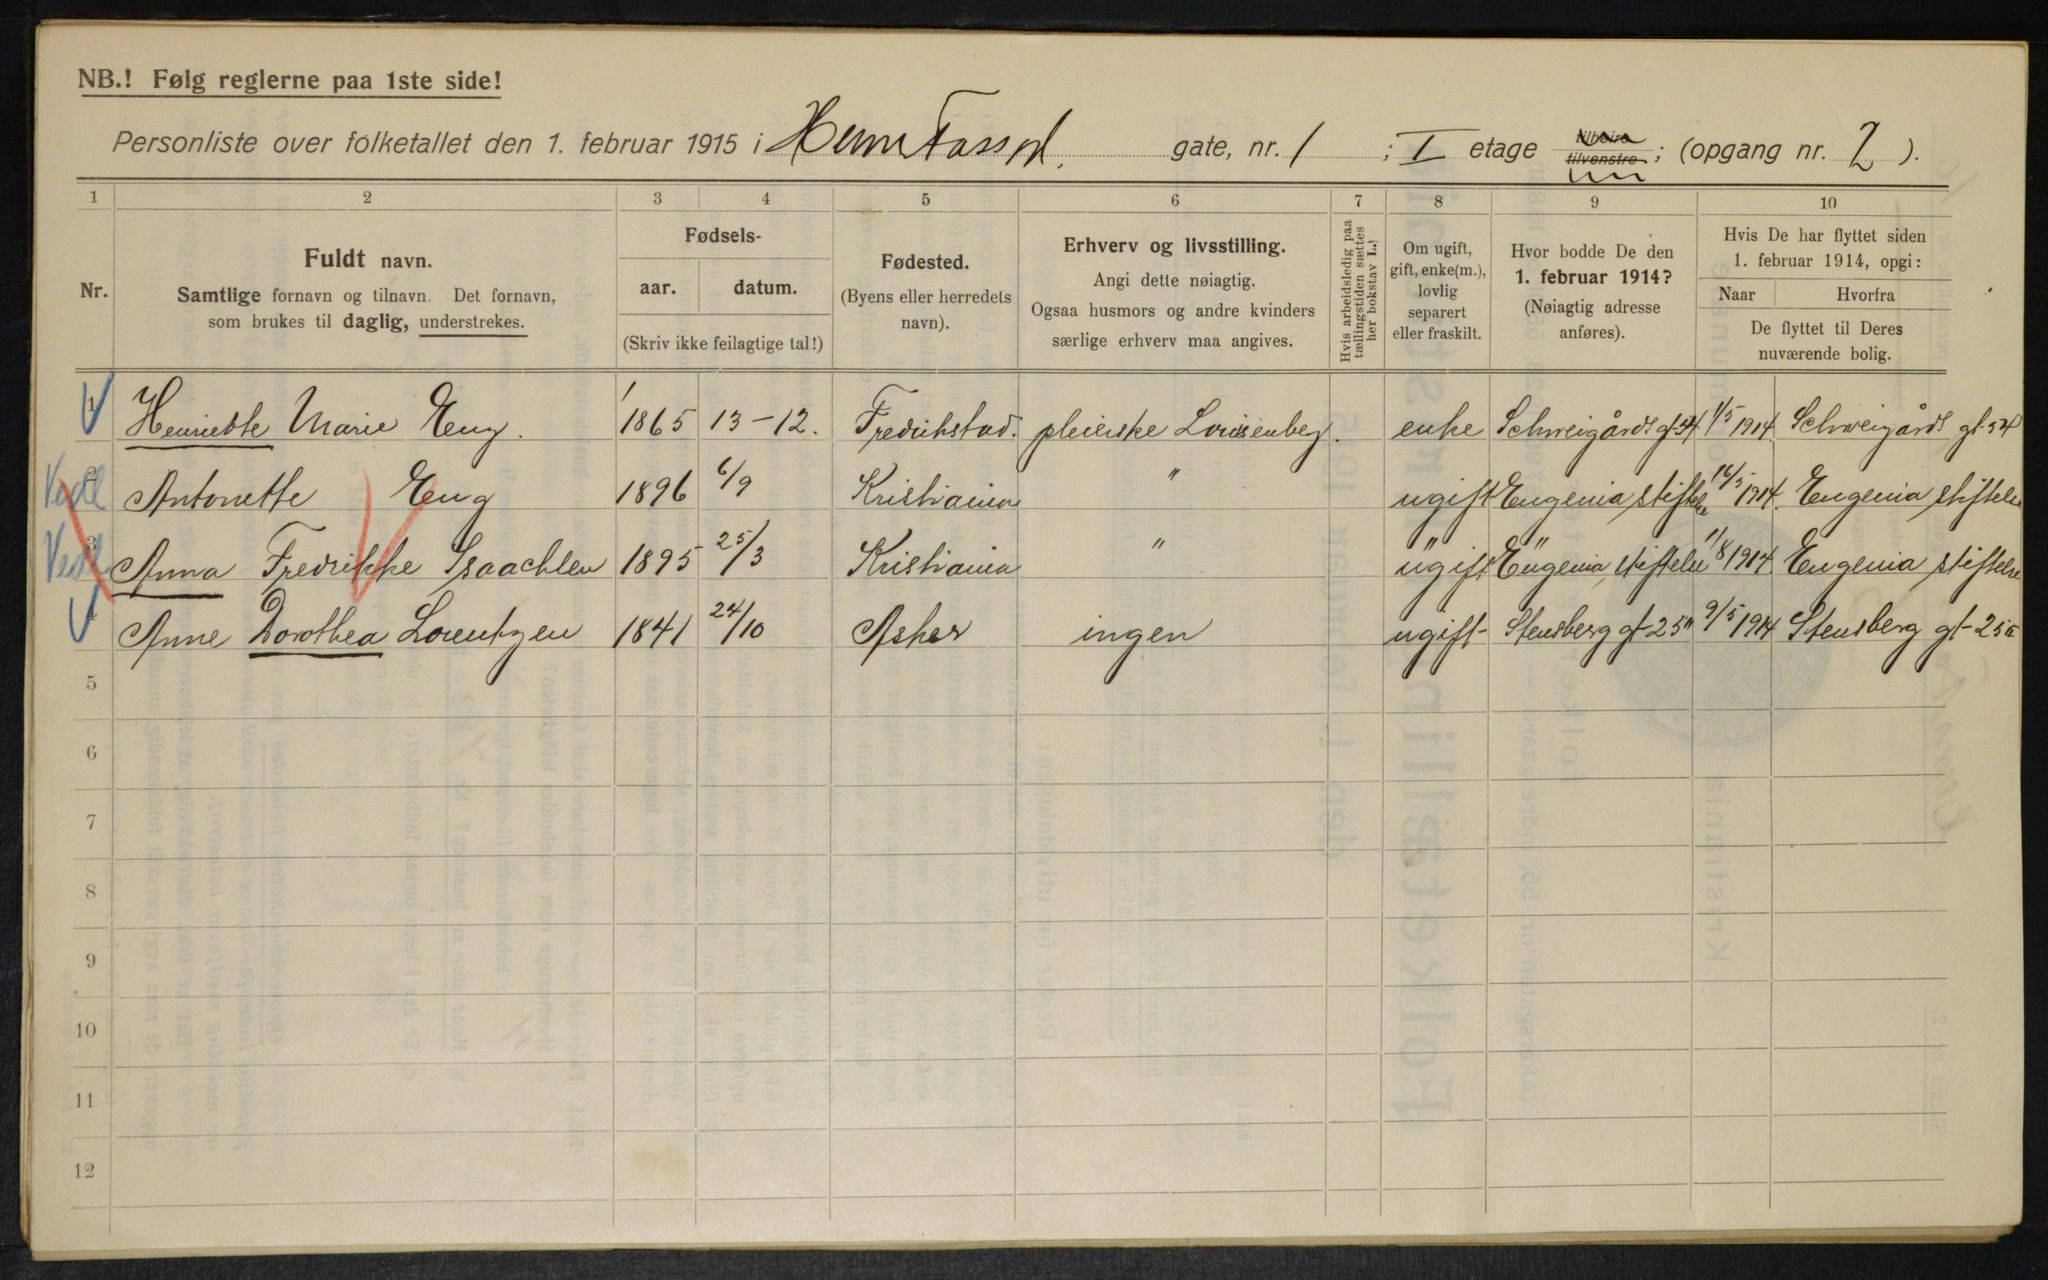 NB.! Følg reglerne paa 1ste side!
Personliste over folketallet den 1. februar 1915 i gate, nr. 1 ; I etage tilhøire tilvenstre ; (opgang nr. 2 ).
1 2 3 4 5 6 7 8 9 10
Nr.
Fuldt navn.
Samtlige fornavn og tilnavn. Det fornavn,
som brukes til daglig, understrekes.
Fødsels-
aar. datum.
(Skriv ikke feilagtige tal!)
Fødested.
(Byens eller herredets
navn).
Erhverv og livsstilling.
Angi dette nøiagtig.
Ogsaa husmors og andre kvinders
særlige erhverv maa angives.
Hvis arbeidsledig paa
tællingstiden sættes
her bokstav L.!
Om ugift,
gift, enke(m.),
lovlig
separert
eller fraskilt.
Hvor bodde De den
1. februar 1914?
(Nøiagtig adresse
anføres).
Hvis De har flyttet siden
1. februar 1914, opgi:
Naar Hvorfra
De flyttet til Deres
nuværende bolig.
1 Henriette Marie Eng. 1865 13-12. Fredrikstad. pleierske Louisenberg. enke Schweigårds gt 54 1/5 1914 Schweigårds gt 54
2 Antonette Eng 1896 6/9 Kristiania " ugift Eugenia stiftelse 16/5 1914. Eugenia stiftelse
3 Anna Fredrikke Isaachsen 1895 25/3 Kristiania " ugift Eugenia stiftelse 1/8 1914. Eugenia stiftelse
4 Anne Dorothea Lorentzen 1841 24/10 Asker ingen ugift Stensberg gt 25a 9/5 1914 Stensberg gt 25a
5
6
7
8
9
10
11
12